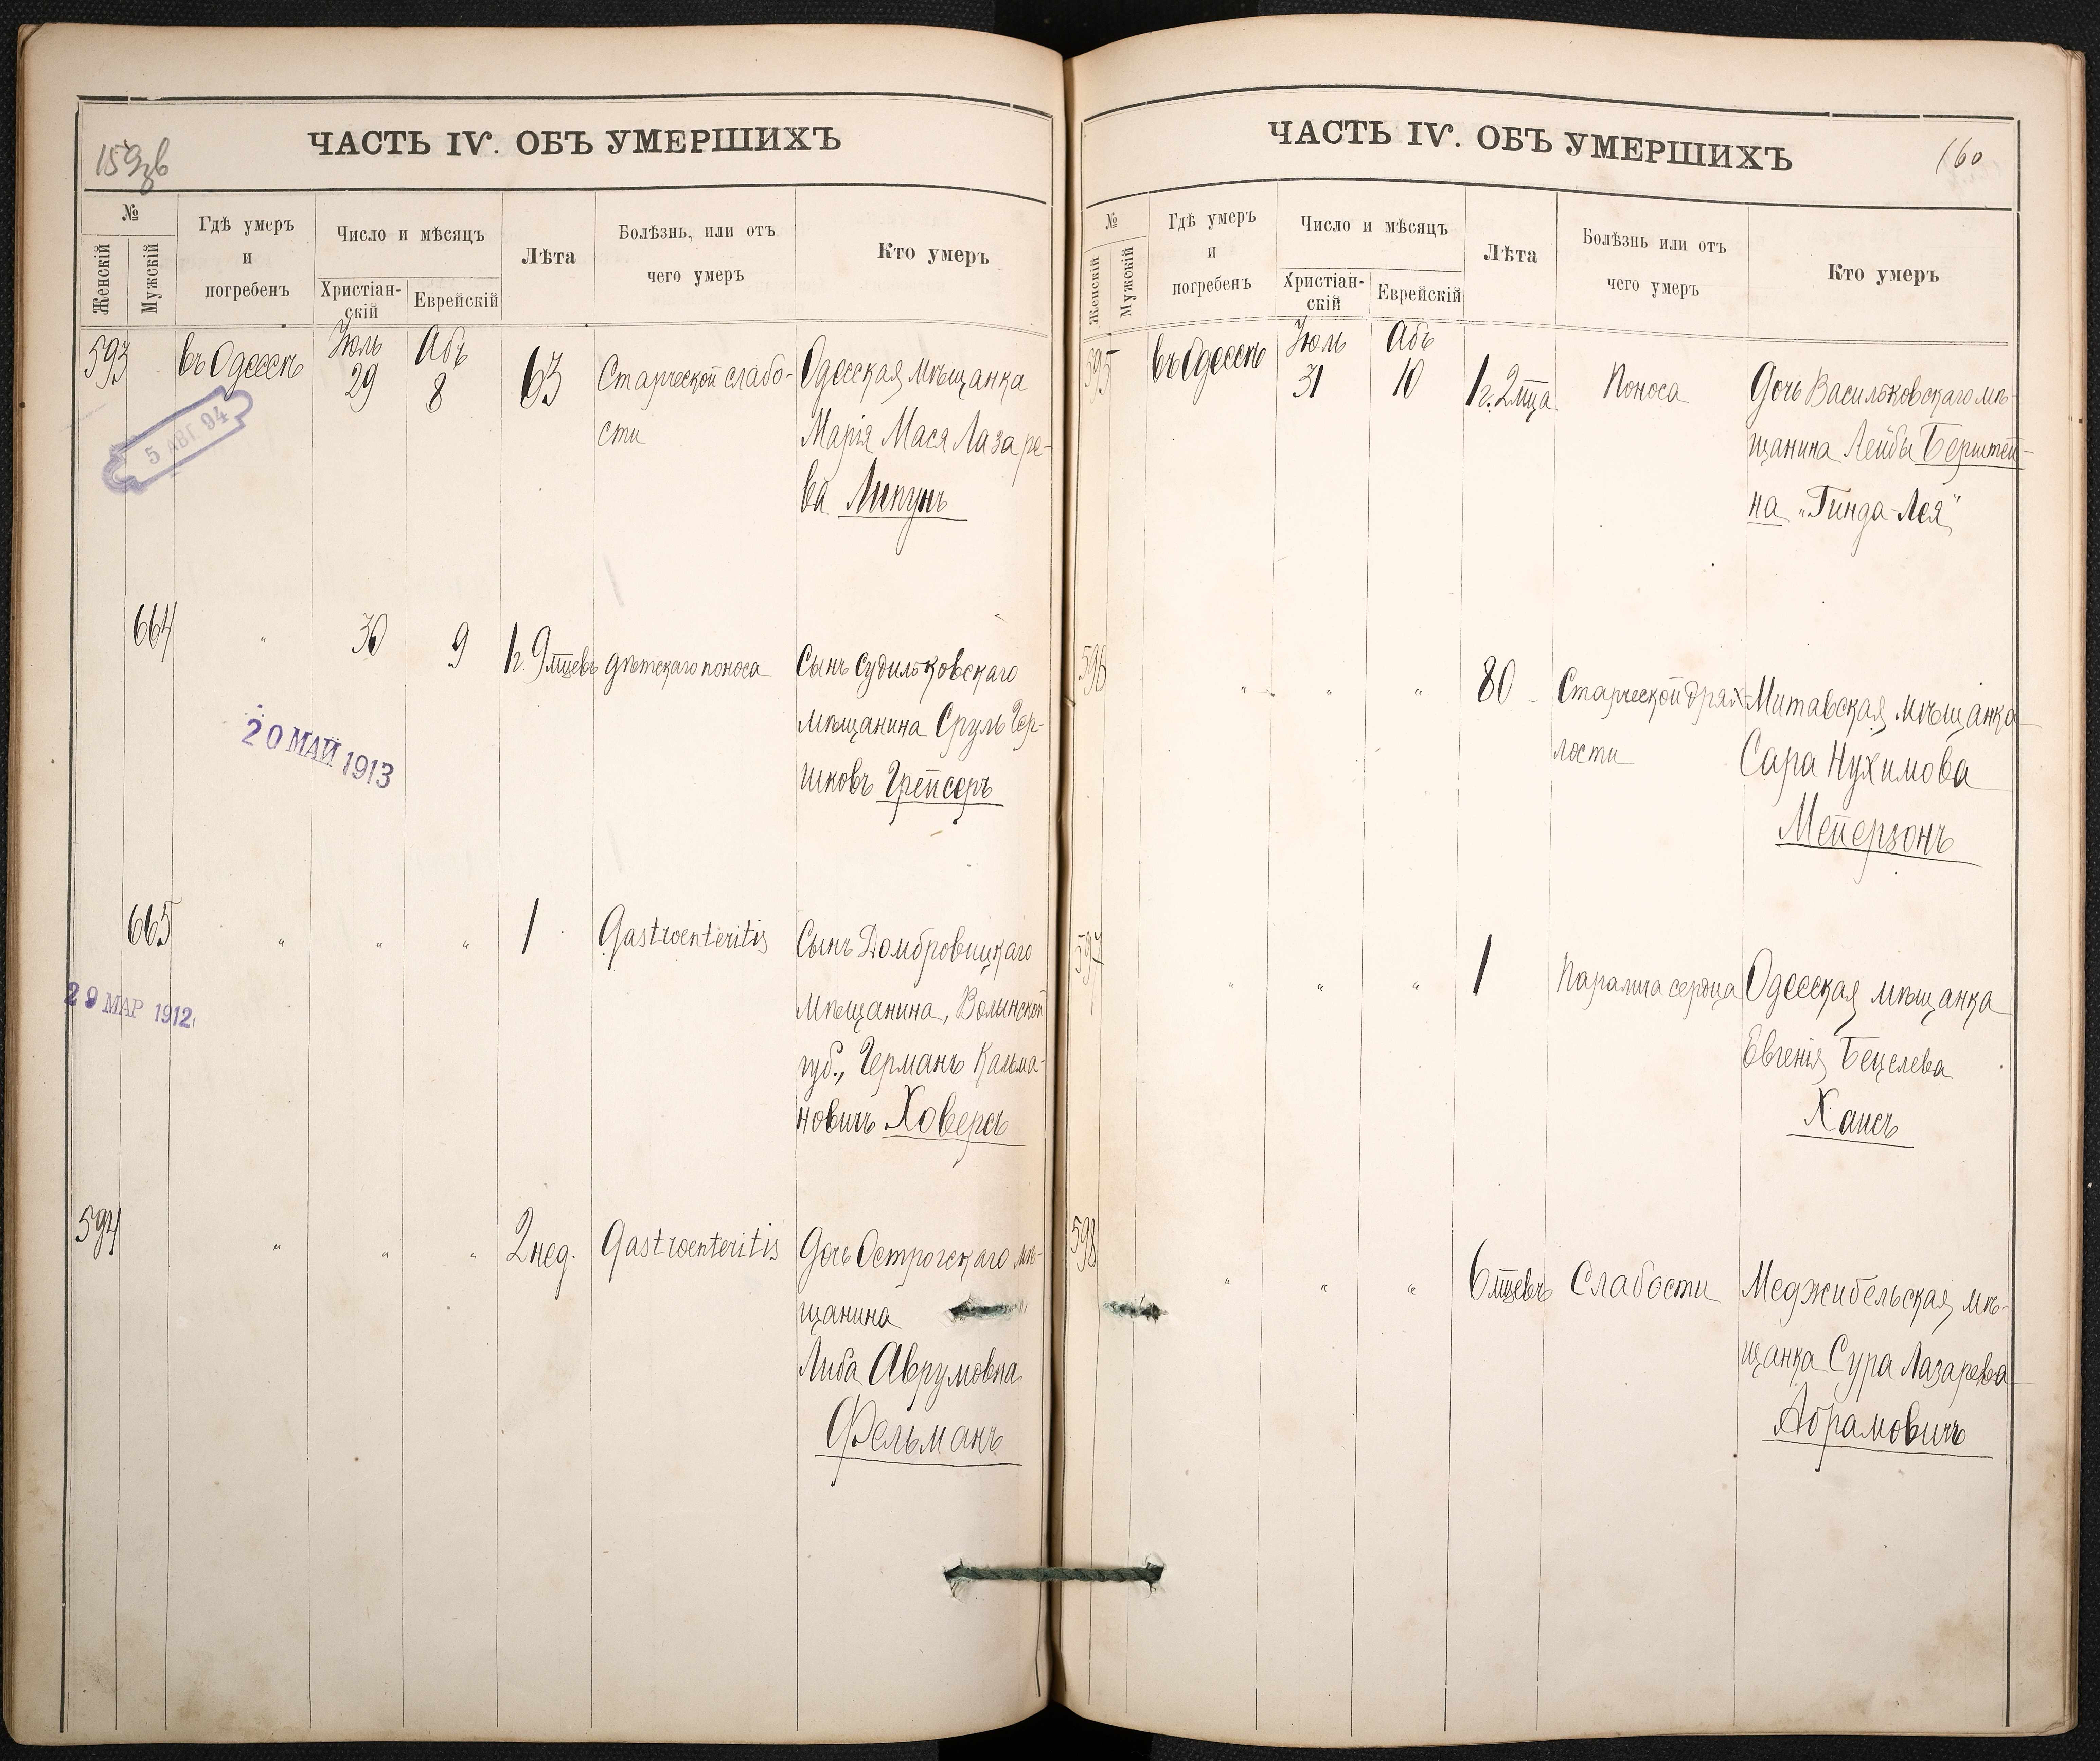 159об
ЧАСТЬ IV. ОБЪ УМЕРШИХЪ
№
Женскій
Мужскій
Гдѣ умеръ
и
погребенъ
Число и мѣсяцъ
Христіан-
скій
Еврейскій
Лѣта
Болѣзнь, или отъ
чего умеръ
Кто умеръ
593 въ Одессѣ Іюль 29 Абъ 8 63 Старческой слабо- Одесская мѣщанка
сти Марія Мася Лазаре-
ва Липунъ
5 АВГ. 94
664 " 30 9 1 г. 9 мцевъ дѣтскаго поноса Сынъ Судилковскаго
мѣщанина Сруль Гер-
шковъ Грейсеръ
20 МАЙ 1913
665 " " " 1 Gastroenteritis Сынъ Домбровицкаго
мѣщанина, Волынской
губ., Германъ Кальма-
новичъ Ховерсъ
29 МАР 1912
594 " " " 2 нед. Gastroenteritis Дочь Острогскаго мѣ-
щанина
Либа Аврумовна
Фельманъ
160
ЧАСТЬ IV. ОБЪ УМЕРШИХЪ
№
Женскій
Мужскій
Гдѣ умеръ
и
погребенъ
Число и мѣсяцъ
Христіан-
скій
Еврейскій
Лѣта
Болѣзнь или отъ
чего умеръ
Кто умеръ
595 въ Одессѣ Іюль 31 Абъ 10 1 г. 2 мца Поноса Дочь Васильковскаго мѣ-
щанина Лейбы Берштей-
на „Гинда-Лея"
596 " " " 80 Старческой дрях- Митавская мѣщанка
лости Сара Нухимова
Мейерзонъ
597 " " " 1 Паралича сердца Одесская мѣщанка
Евгенія Бецелева
Хаисъ
598 " " " 6 мцевъ Слабости Меджибельская мѣ-
щанка Сура Лазарева
Абрамовичъ